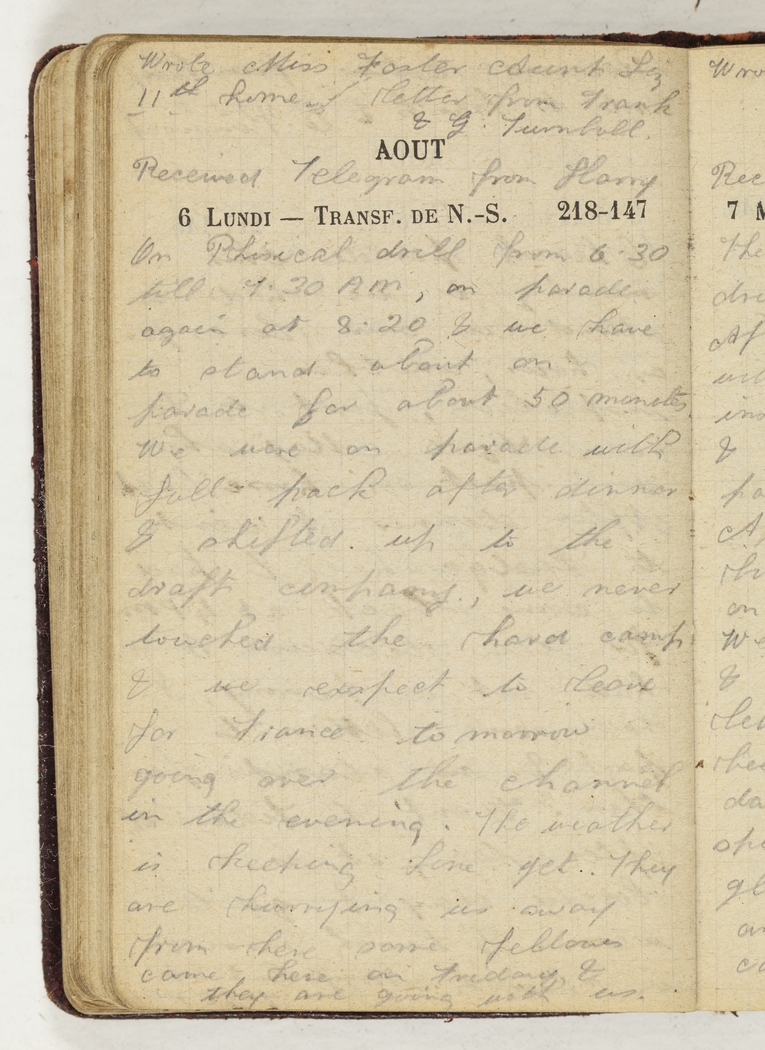 Wrote Miss Foster Aunt Liz
11th home. letter from Frank
& G. Turnbull.
AOUT
Received Telegram from Harry
6 LUNDI — TRANSF. DE N.-S. 218-147
On Phisical drill from 6.30
till 7.30 AM, on parade
again at 8.20 & we have
to stand about on
parade for about 50 minutes
We were on parade with
full pack after dinner
& shifted up to the
draft company, we never
touched the hard camp
& we exspect to leave
for France tomorrow
going over the channel
in the evening. The weather
is keeping fine yet. They
are hurrying us away
from here some fellows
came here on Friday &
they are going with us.
Wro
Rec
7 M
The
dri
Af
ins
&
pa
on
We
&
da
an